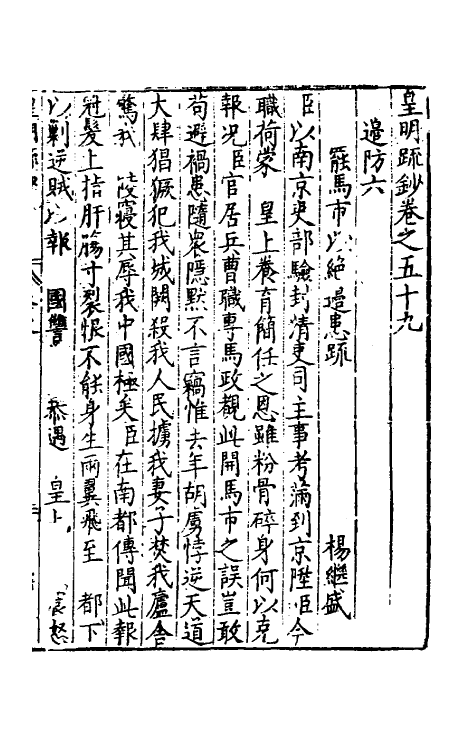 皇明疏鈔卷之五十九
邊防六
罷馬市以絶邊患疏 楊繼盛
臣以南京吏部驗封清吏司主事考滿到京陞臣今
職荷蒙 皇上養育簡任之恩雖粉骨碎身何以克
報况臣官居兵曹職專馬政觀此開馬市之誤豈敢
苟避禍患隨衆隱默不言竊惟去年胡虜悖逆天道
大肆猖獗犯我城闕殺我人民擄我妻子焚我廬舍
驚我 陵寢其辱我中國極矣臣在南都傳聞此報
冠髮上指肝腸寸裂恨不能身生兩翼飛至 都下
以剿逆賊以報 國讐 恭遇 皇上 怒